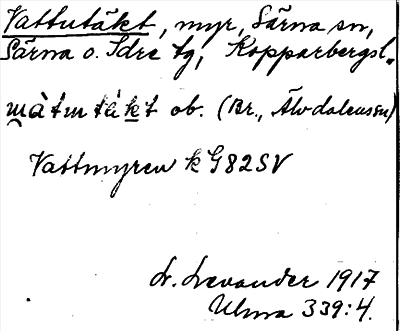 Vattutäkt, myr, Särna sn,
Särna o. Idre tg, Kopparbergsl.
màtmtäkt ob. (Br., Älvdalenssn)
Vattmyren k G82SV
L. Levander 1917
Ulma 339:4.